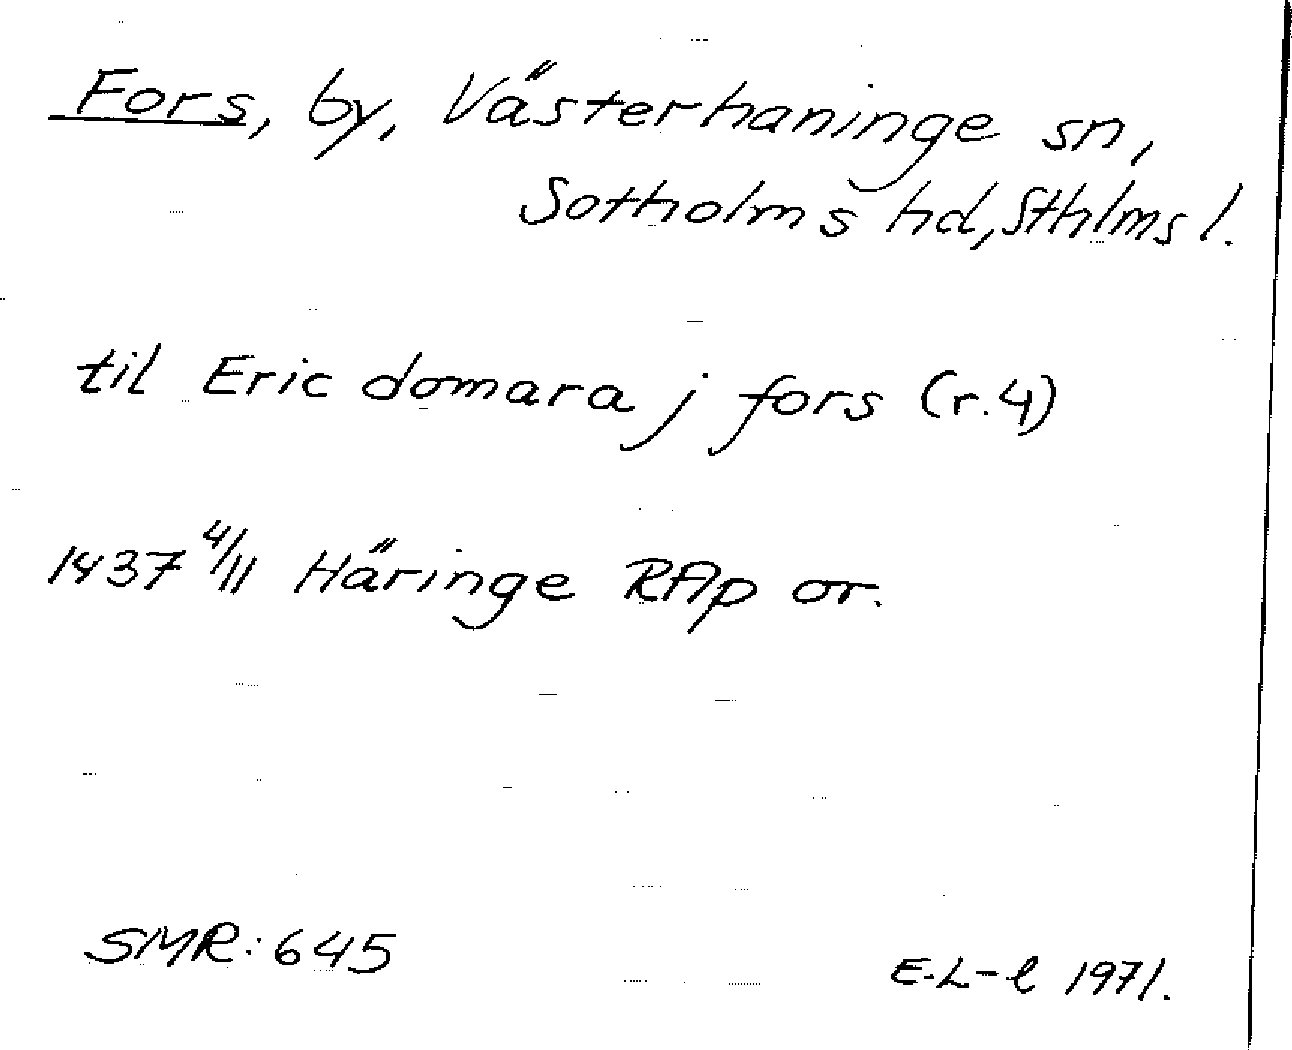 Fors, by, Västerhaninge sn,
Sotholms hd, Sthlms l.
til Eric domara j fors (r. 4)
1437 4/11 Häringe RAp or.
SMR: 645
E.L-l 1971.